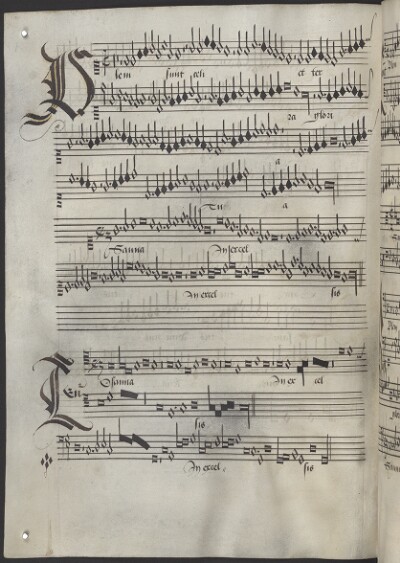 Plem sunt celi et ter
ra glori
a
Tu a
Osanna In excel
In excel sis
Ten
Osanna In ex cel
sis
In excel sis